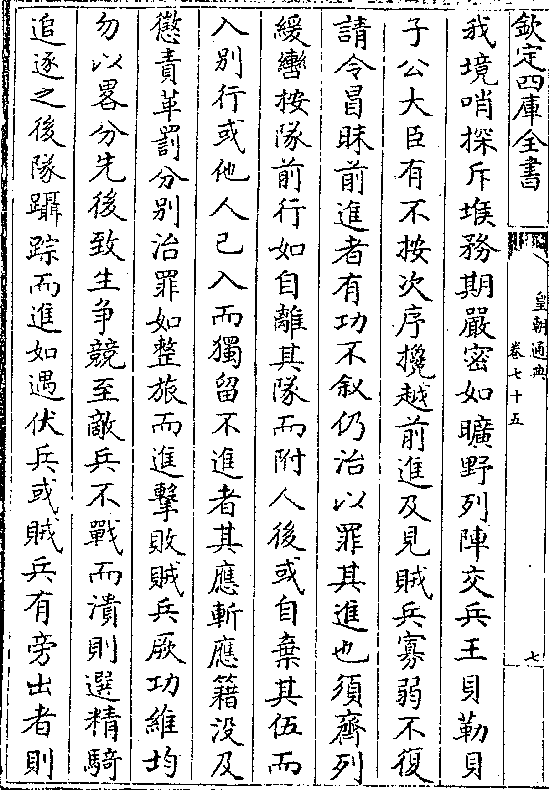 欽定四庫全書
皇朝通典
卷七十五
七
我境哨探斥堠務期嚴密如曠野列陣交兵王貝勒貝
子公大臣有不按次序攙越前進及見賊兵寡弱不復
請令冒昧前進者有功不叙仍治以罪其進也須齊列
緩轡按隊前行如自離其隊而附人後或自棄其伍而
入别行或他人已入而獨留不進者其應斬應籍没及
懲責革罰分别治罪如整旅而進擊敗賊兵厥功維均
勿以畧分先後致生争競至敵兵不戰而潰則選精騎
追逐之後隊躡踪而進如遇伏兵或賊兵有旁出者則